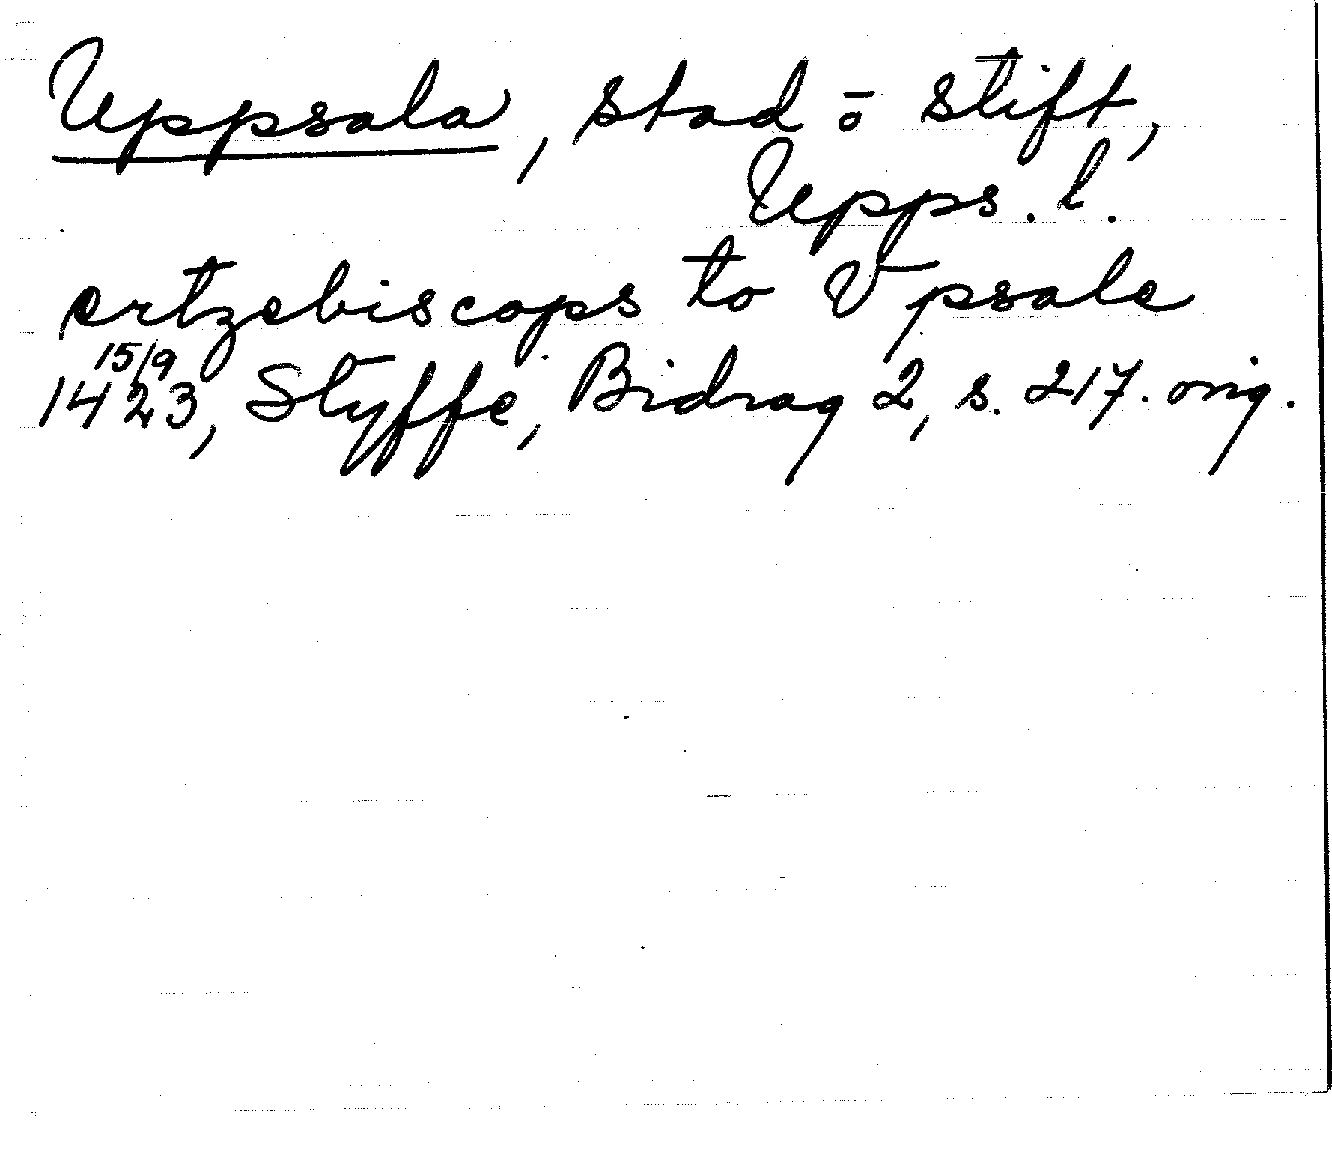 Uppsala, stad o stift,
Upps. l.
ertzebiscops to Vpsale
15/9
1423, Styffe, Bidrag 2, s. 217. orig.